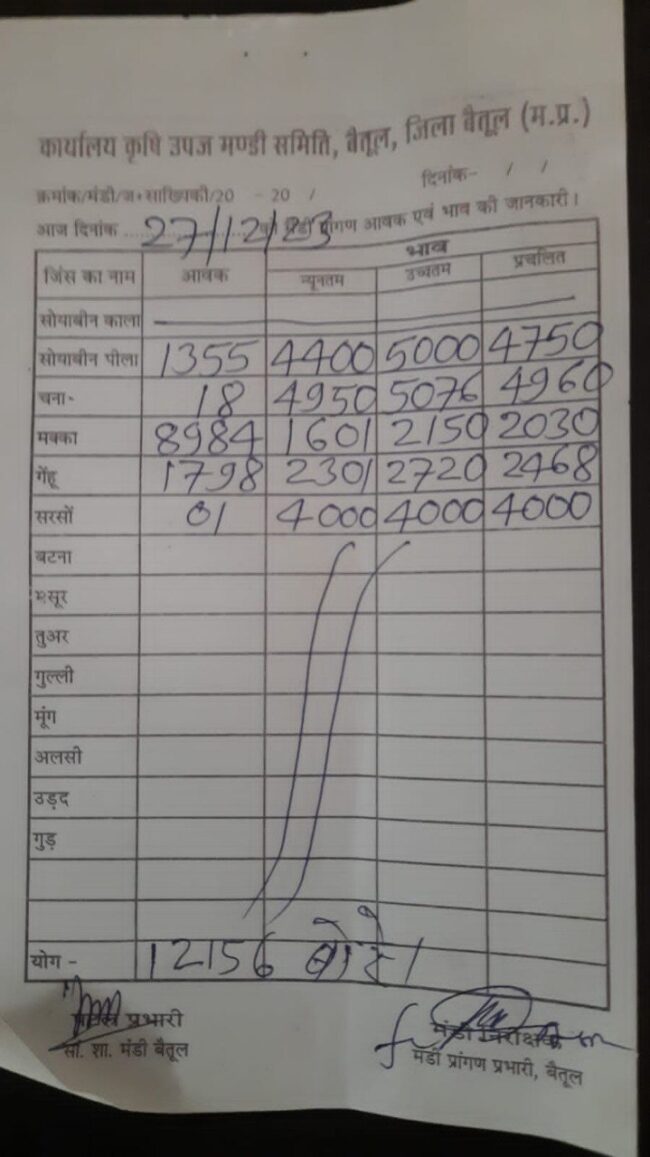 कार्यालय कृषि उपज मण्डी समिति, बैतूल, जिला बैतूल (म.प्र.)
क्रमांक/मंडी/ज.साख्यिकी/20 - 20 / दिनांक- / /
आज दिनांक 27/12/23 को मंडी प्रांगण आवक एवं भाव की जानकारी।
जिंस का नाम आवक भाव
न्यूनतम उच्चतम प्रचलित
सोयाबीन काला
सोयाबीन पीला 1355 4400 5000 4750
चना- 18 4950 5076 4960
मक्का 8984 1601 2150 2030
गेंहू 1798 2301 2720 2468
सरसों 01 4000 4000 4000
बटना
मसूर
तुअर
गुल्ली
मूंग
अलसी
उड़द
गुड़
योग - 12156 बोरे।
प्रभारी मंडी निरीक्षक
सां. शा. मंडी बैतूल मंडी प्रांगण प्रभारी, बैतूल